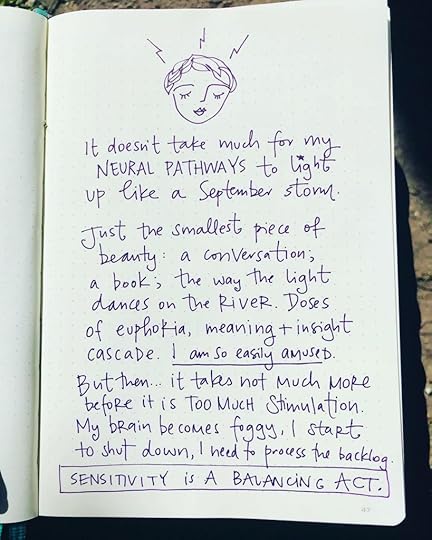 It doesn't take much for my
NEURAL PATHWAYS to light
up like a September storm.
Just the smallest piece of
beauty: a conversation;
a book; the way the light
dances on the RIVER. Doses
of euphoria, meaning + insight
cascade. I am so easily amused.
But then... it takes not much more
before it is TOO MUCH Stimulation.
My brain becomes foggy, I start
to shut down, I need to process the backlog.
SENSITIVITY is A BALANCING ACT.
47